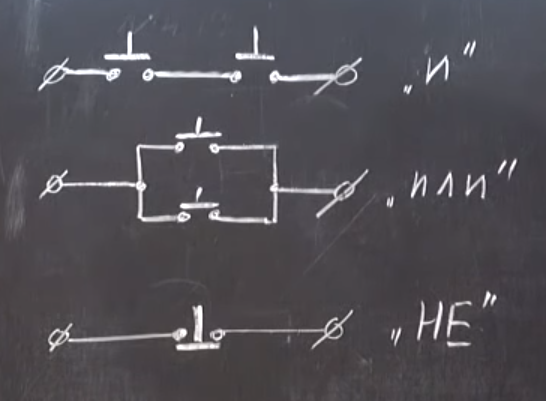 „И"
„ИЛИ"
„НЕ"